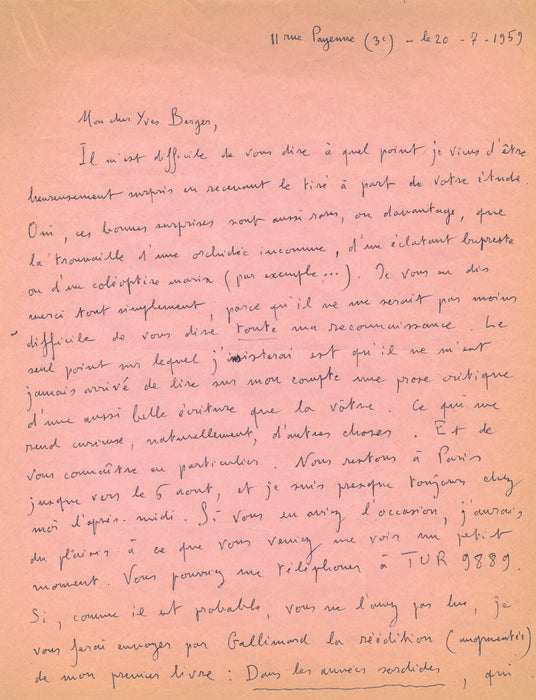 11 rue Payenne (3e) - le 20 - 7 - 1959
Mon cher Yves Berger,
Il m'est difficile de vous dire à quel point je viens d'être
heureusement surpris en recevant le tiré à part de votre étude.
Oui, ces bonnes surprises sont aussi rares, ou davantage, que
la trouvaille d'une orchidée inconnue, d'un éclatant bupreste
ou d'un coléoptère marin (par exemple...). Je vous en dis
merci tout simplement, parce qu'il ne me serait pas moins
difficile de vous dire toute ma reconnaissance. Le
seul point sur lequel j'insisterai est qu'il ne m'est
jamais arrivé de lire sur mon compte une prose critique
d'une aussi belle écriture que la vôtre. Ce qui me
rend curieux, naturellement, d'autres choses. Et de
vous connaître en particulier. Nous restons à Paris
jusque vers le 6 aout, et je suis presque toujours chez
moi l'après-midi. Si vous en aviez l'occasion, j'aurais
du plaisir à ce que vous veniez me voir un petit
moment. Vous pourriez me téléphoner à TUR 9889.
Si, comme il est probable, vous ne l'avez pas lu, je
vous ferai envoyer par Gallimard la réédition (augmentée)
de mon premier livre : Dans les années sordides, qui